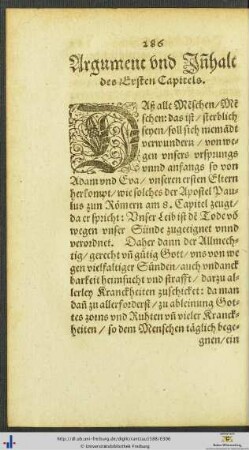 186
Argument vnd Jñhalt
des Ersten Capitels.
DAß alle Mẽschen/ Mẽ
schen: das ist/ sterblich
seyen/ soll sich niemãdt
verwundern/ von we⸗
gen vnsers vrsprungs
vnnd anfangs so von
Adam vnd Eva/ vnseren ersten Eltern
herkompt/ wie solches der Apostel Pau⸗
lus zun Römern am 8. Capitel zeugt/
da er spricht: Vnser Leib ist dẽ Tode võ
wegen vnser Sünde zugeeignet vnnd
verordnet. Daher dann der Allmech⸗
tig/ gerecht vñ gütig Gott/ vns von we
gen vielfaltiger Sünden/ auch vndanck
barkeit heimsucht vnd strafft/ darzu al⸗
lerley Kranckheiten zuschicket: da man
dañ zu allerforderst/ zu ableinung Got⸗
tes zorns vnd Ruhten vñ vieler Kranck⸗
heiten/ so dem Menschen täglich bege⸗
gnen/ ein
http://dl.ub.uni-freiburg.de/diglit/
© Universitätsbibliothek Freiburg